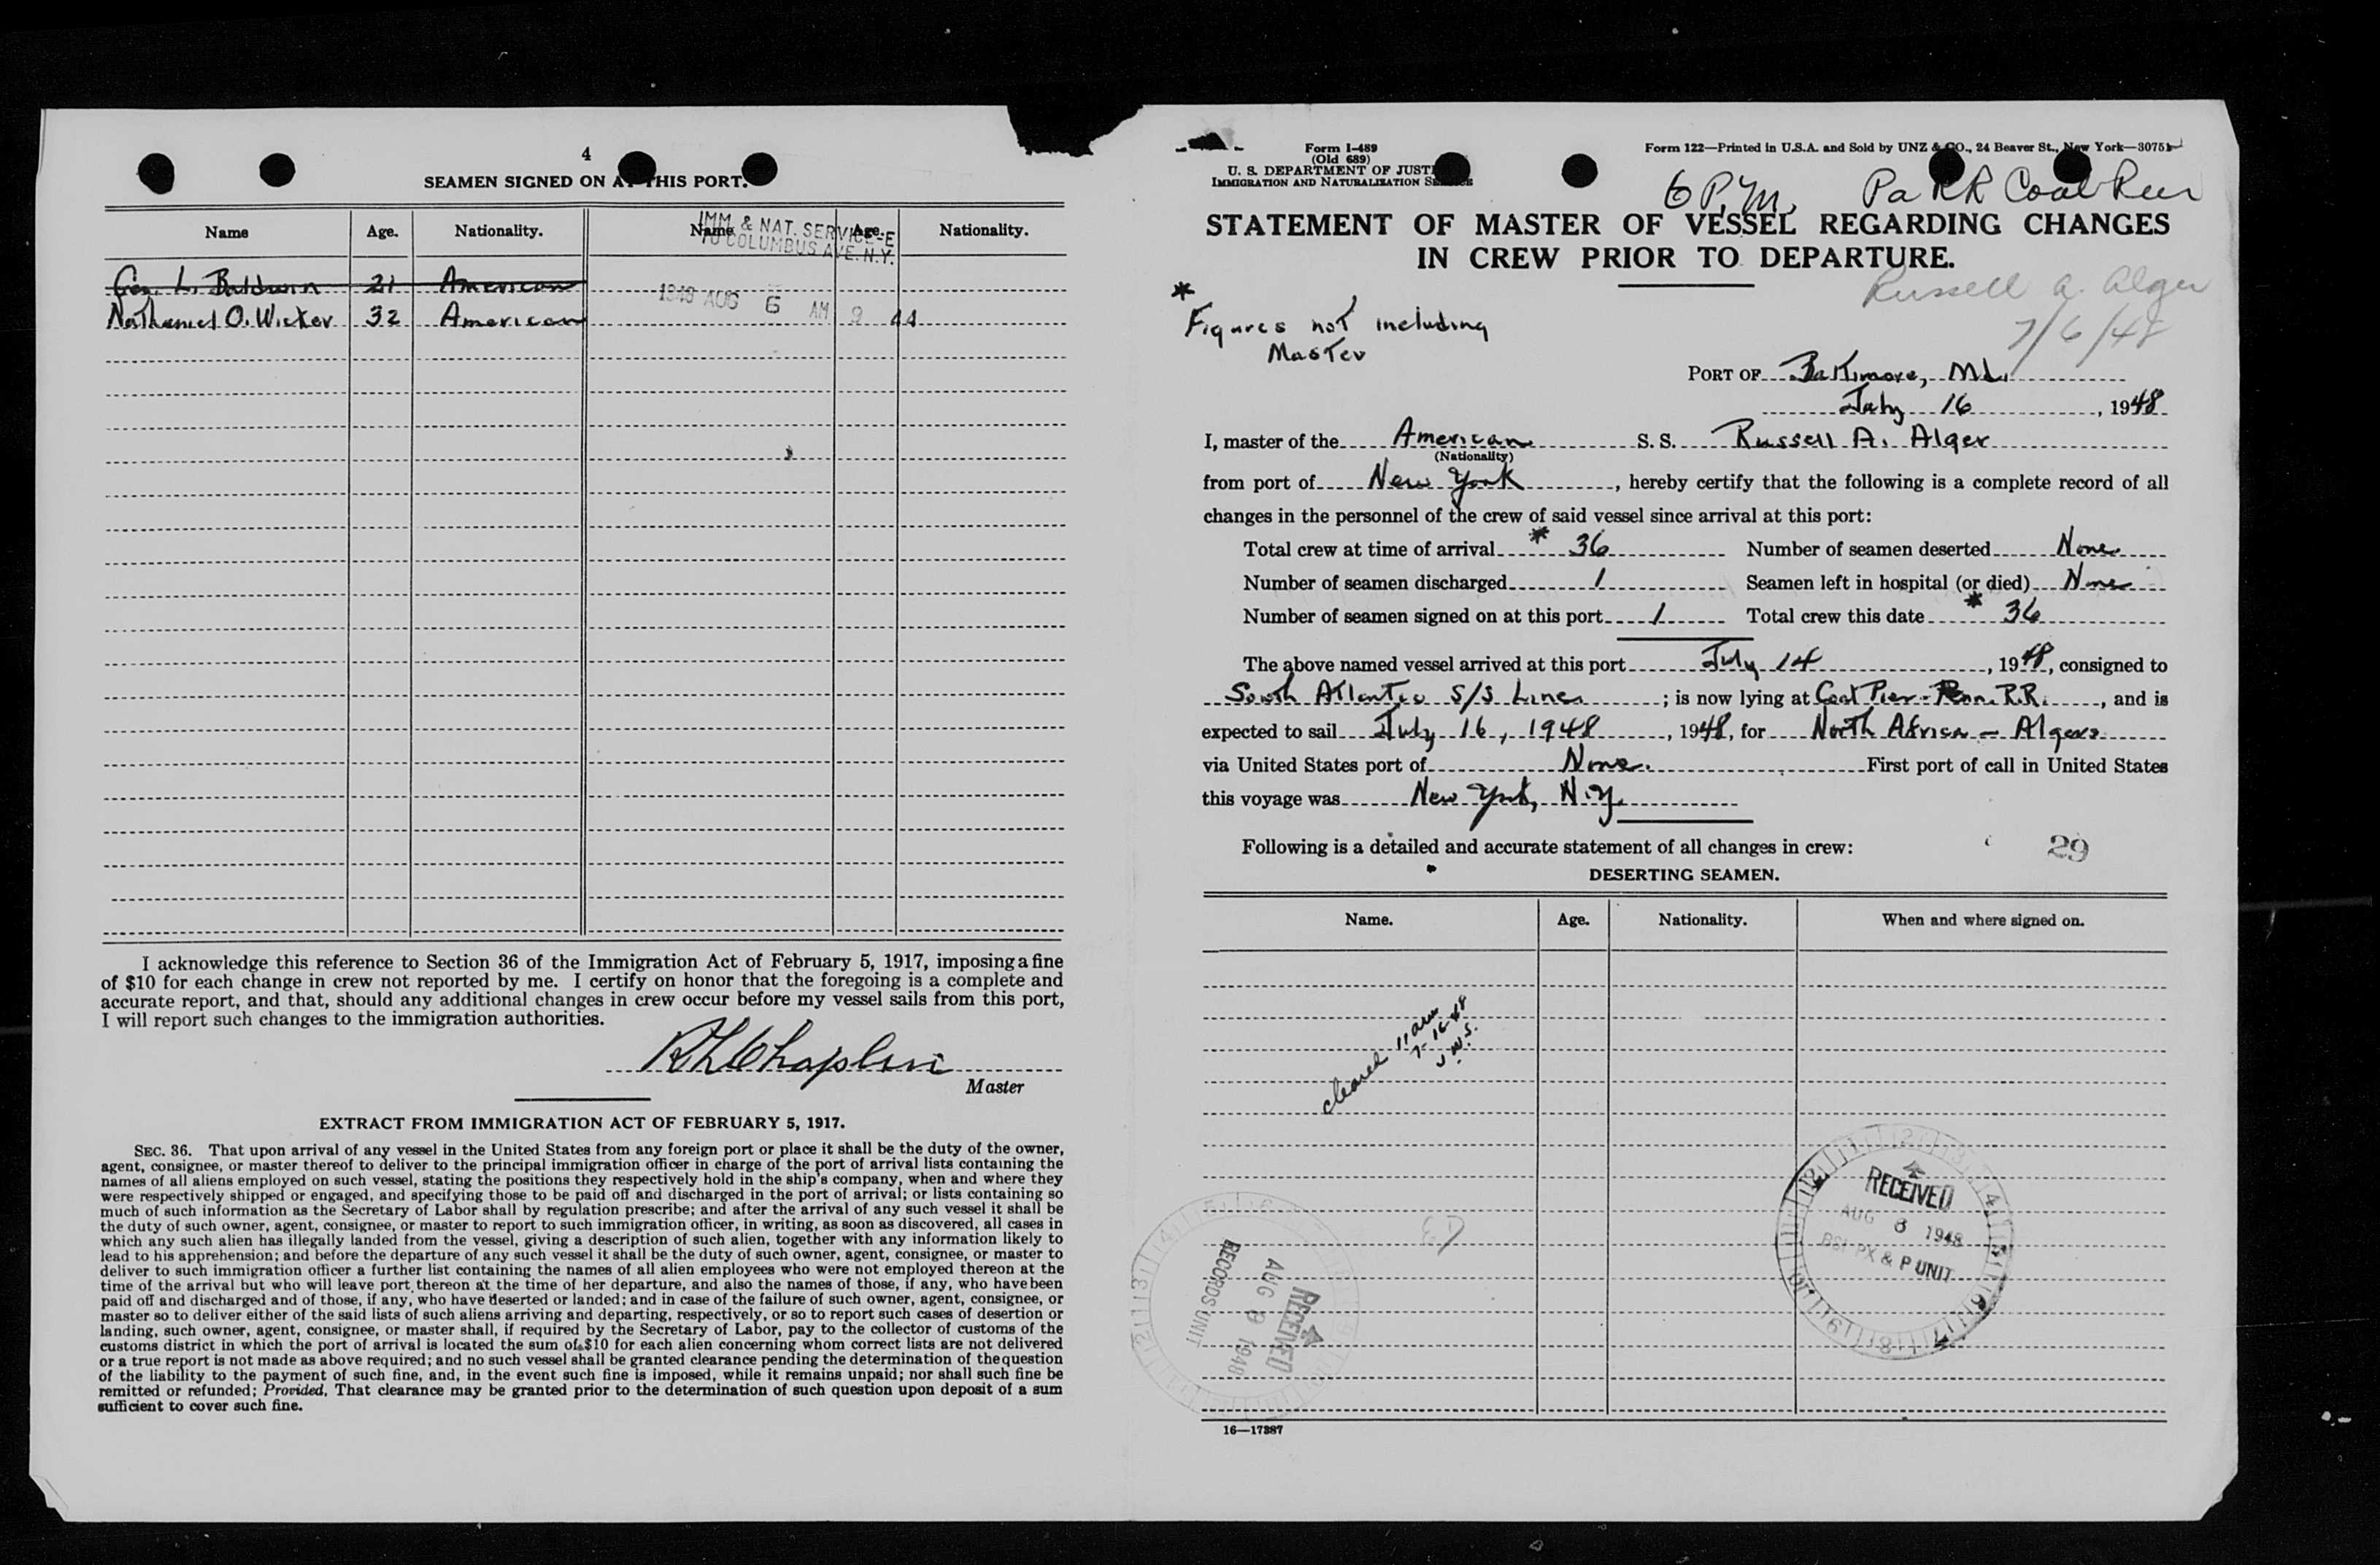 4
SEAMEN SIGNED ON AT THIS PORT.
Name Age. Nationality. Name Age. Nationality.
IMM & NAT. SERVICE-E
70 COLUMBUS AVE. N.Y.
Geo. L. Baldwin 21 American
1948 AUG 6 AM 9 44
Nathaniel O. Wicker 32 American
I acknowledge this reference to Section 36 of the Immigration Act of February 5, 1917, imposing a fine
of $10 for each change in crew not reported by me. I certify on honor that the foregoing is a complete and
accurate report, and that, should any additional changes in crew occur before my vessel sails from this port,
I will report such changes to the immigration authorities.
R L Chaplin
Master
EXTRACT FROM IMMIGRATION ACT OF FEBRUARY 5, 1917.
SEC. 36. That upon arrival of any vessel in the United States from any foreign port or place it shall be the duty of the owner,
agent, consignee, or master thereof to deliver to the principal immigration officer in charge of the port of arrival lists containing the
names of all aliens employed on such vessel, stating the positions they respectively hold in the ship's company, when and where they
were respectively shipped or engaged, and specifying those to be paid off and discharged in the port of arrival; or lists containing so
much of such information as the Secretary of Labor shall by regulation prescribe; and after the arrival of any such vessel it shall be
the duty of such owner, agent, consignee, or master to report to such immigration officer, in writing, as soon as discovered, all cases in
which any such alien has illegally landed from the vessel, giving a description of such alien, together with any information likely to
lead to his apprehension; and before the departure of any such vessel it shall be the duty of such owner, agent, consignee, or master to
deliver to such immigration officer a further list containing the names of all alien employees who were not employed thereon at the
time of the arrival but who will leave port thereon at the time of her departure, and also the names of those, if any, who have been
paid off and discharged and of those, if any, who have deserted or landed; and in case of the failure of such owner, agent, consignee, or
master so to deliver either of the said lists of such aliens arriving and departing, respectively, or so to report such cases of desertion or
landing, such owner, agent, consignee, or master shall, if required by the Secretary of Labor, pay to the collector of customs of the
customs district in which the port of arrival is located the sum of $10 for each alien concerning whom correct lists are not delivered
or a true report is not made as above required; and no such vessel shall be granted clearance pending the determination of the question
of the liability to the payment of such fine, and, in the event such fine is imposed, while it remains unpaid; nor shall such fine be
remitted or refunded; Provided, That clearance may be granted prior to the determination of such question upon deposit of a sum
sufficient to cover such fine.
Form I-489
(Old 689)
U. S. DEPARTMENT OF JUSTI
IMMIGRATION AND NATURALIZATION SE
Form 122—Printed in U.S.A. and Sold by UNZ & CO., 24 Beaver St., New York—30751
6 P.M. Pa RR Coal Pier
STATEMENT OF MASTER OF VESSEL REGARDING CHANGES
IN CREW PRIOR TO DEPARTURE.
Russell A. Alger
7/6/48
* Figures not including
Master
PORT OF Baltimore, Md.
July 16, 1948
I, master of the American S. S. Russell A. Alger
(Nationality)
from port of New York, hereby certify that the following is a complete record of all
changes in the personnel of the crew of said vessel since arrival at this port:
Total crew at time of arrival * 36 Number of seamen deserted None
Number of seamen discharged 1 Seamen left in hospital (or died) None
Number of seamen signed on at this port 1 Total crew this date * 36
The above named vessel arrived at this port July 14, 1948, consigned to
South Atlantic S/S Lines; is now lying at Coal Pier-Penn. R.R., and is
expected to sail July 16, 1948, 1948, for North Africa - Algers
via United States port of None. First port of call in United States
this voyage was New York, N.Y.
Following is a detailed and accurate statement of all changes in crew:
29
DESERTING SEAMEN.
Name. Age. Nationality. When and where signed on.
cleared 11 am
7-16-48
J.W.S.
RECEIVED
AUG 3 1948
PX & P UNIT
RECEIVED
AUG 9 1948
RECORDS UNIT
16—17387